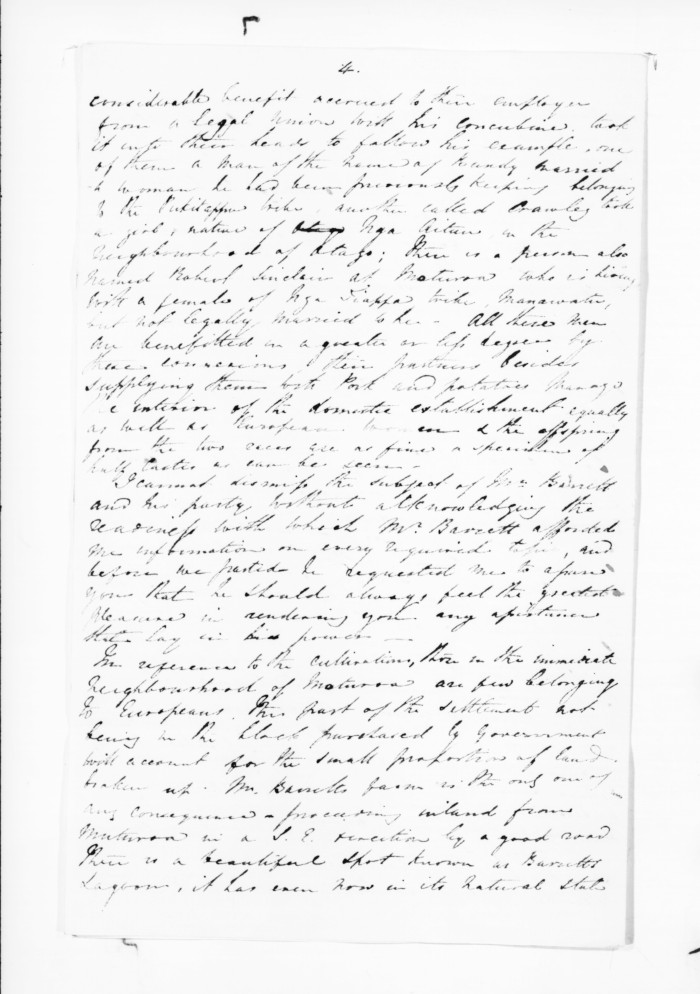 4.
considerable benefit accrued to their employer
from a legal union with his concubine, took
it into their heads to follow his example. one
of them a man of the name of Bundy married
a woman he had been previously keeping belonging
to the Puketappu tribe, another called Crawley took
a girl, native of Nga Aitu in the
neighbourhood of Otago; there is a person also
named Robert Sinclair at Moturoa who is living
with a female of Nga Tiappa tribe, Manawatu,
but not legally married to her - All these men
are benefitted in a greater or less degree by
these connexions, their partners besides
supplying them with Pork and potatoes manage
the interior of the domestic establishment equally
as well as European women & the offspring
from the two races are as fine a specimen of
half castes as can be seen -
I cannot dismiss the subject of Mr. Barrett
and his party, without acknowledging the
readiness with which Mr. Barrett afforded
me information on every required topic, and
before we parted he requested me to assure
you that he should always feel the greatest
pleasure in rendering you any assistance
that lay in his power -
In reference to the cultivations, those in the immediate
neighbourhood of Moturoa are few belonging
to Europeans. This part of the settlement not
being in the block purchased by Government
will account for the small proportion of land
broken up. Mr. Barretts farm is the only one of
any consequence - proceeding inland from
Muturoa in a S. E. direction by a good road
there is a beautiful spot known as Barretts
Lagoon, it has even now in its natural state